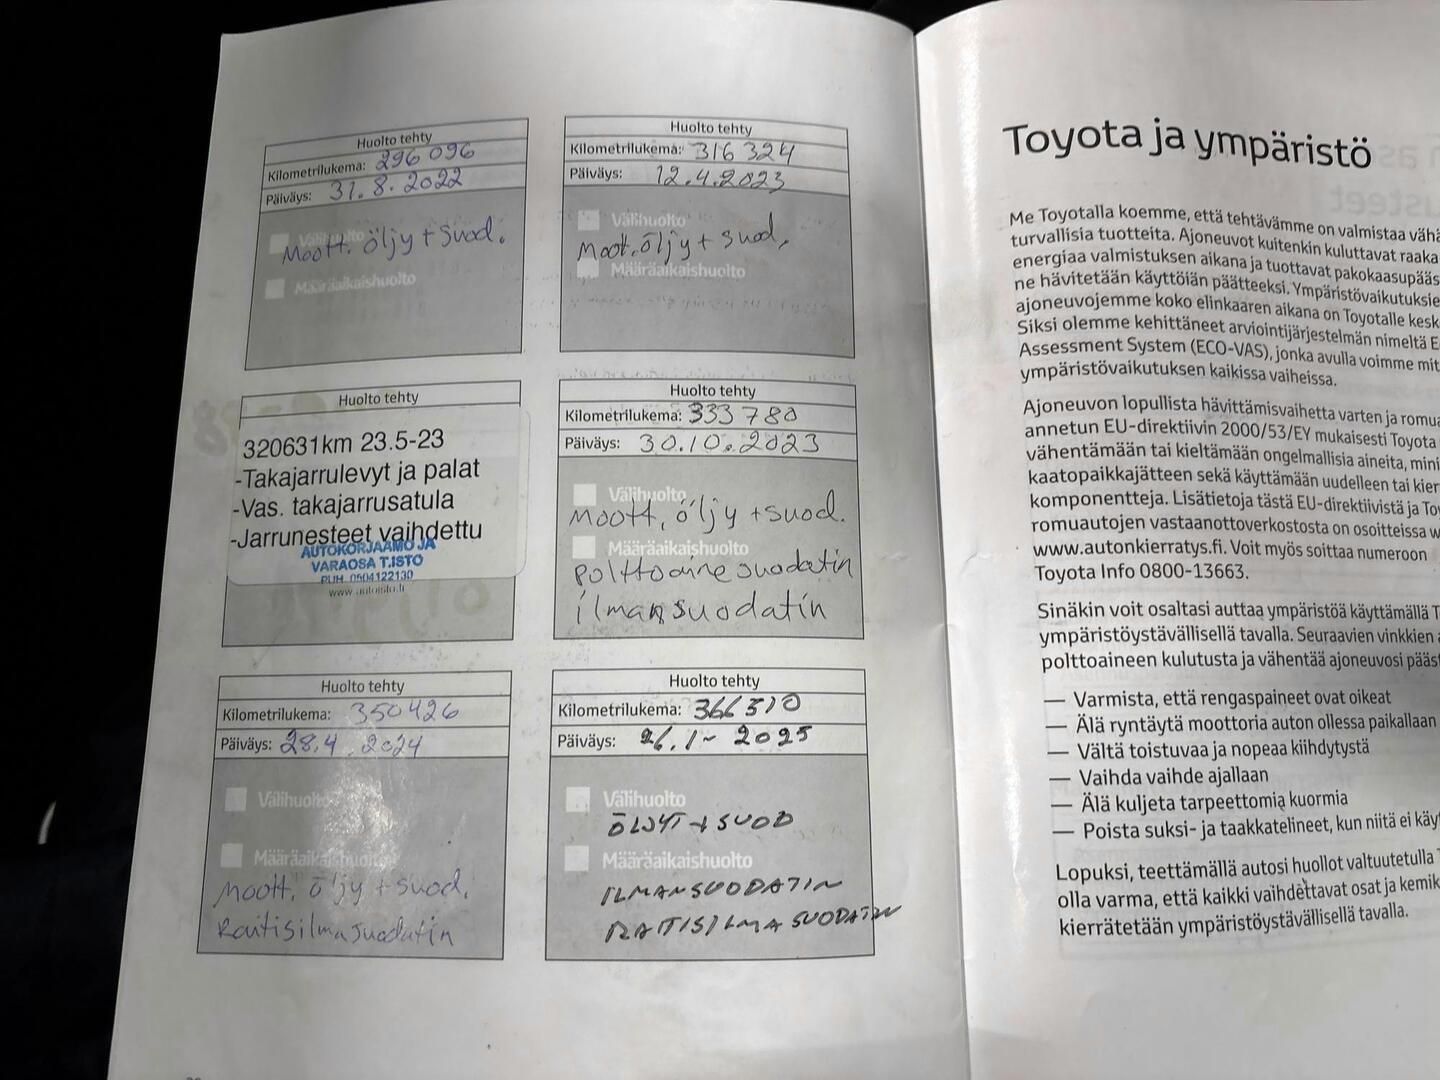 Huolto tehty
Kilometrilukema: 296 096
Päiväys: 31.8.2022
Välihuolto
Moott. öljy + suod.
Määräaikaishuolto
Huolto tehty
Kilometrilukema: 316 324
Päiväys: 12.4.2023
Välihuolto
Moot. öljy + suod.
Määräaikaishuolto
Huolto tehty
320631km 23.5-23
-Takajarrulevyt ja palat
-Vas. takajarrusatula
-Jarrunesteet vaihdettu
AUTOKORJAAMO JA
VARAOSA T.ISTO
PUH. 0504122130
www.autoisto.fi
Huolto tehty
Kilometrilukema: 333 780
Päiväys: 30.10.2023
Välihuolto
Moott. öljy + suod.
Määräaikaishuolto
polttoaine suodatin
ilmansuodatin
Huolto tehty
Kilometrilukema: 350426
Päiväys: 28.4.2024
Välihuolto
Määräaikaishuolto
Moott. öljy + suod.
Raitisilmasuodatin
Huolto tehty
Kilometrilukema: 366510
Päiväys: 26.1- 2025
Välihuolto
ÖLJYT + SUOD
Määräaikaishuolto
ILMANSUODATIN
RAITISILMASUODATIN
Toyota ja ympäristö
Me Toyotalla koemme, että tehtävämme on valmistaa vähä
turvallisia tuotteita. Ajoneuvot kuitenkin kuluttavat raaka
energiaa valmistuksen aikana ja tuottavat pakokaasupääs
ne hävitetään käyttöiän päätteeksi. Ympäristövaikutuksie
ajoneuvojemme koko elinkaaren aikana on Toyotalle kesk
Siksi olemme kehittäneet arviointijärjestelmän nimeltä E
Assessment System (ECO-VAS), jonka avulla voimme mit
ympäristövaikutuksen kaikissa vaiheissa.
Ajoneuvon lopullista hävittämisvaihetta varten ja romua
annetun EU-direktiivin 2000/53/EY mukaisesti Toyota
vähentämään tai kieltämään ongelmallisia aineita, mini
kaatopaikkajätteen sekä käyttämään uudelleen tai kier
komponentteja. Lisätietoja tästä EU-direktiivistä ja Toy
romuautojen vastaanottoverkostosta on osoitteissa w
www.autonkierratys.fi. Voit myös soittaa numeroon
Toyota Info 0800-13663.
Sinäkin voit osaltasi auttaa ympäristöä käyttämällä T
ympäristöystävällisellä tavalla. Seuraavien vinkkien a
polttoaineen kulutusta ja vähentää ajoneuvosi pääst
— Varmista, että rengaspaineet ovat oikeat
— Älä ryntäytä moottoria auton ollessa paikallaan
— Vältä toistuvaa ja nopeaa kiihdytystä
— Vaihda vaihde ajallaan
— Älä kuljeta tarpeettomia kuormia
— Poista suksi- ja taakkatelineet, kun niitä ei käyt
Lopuksi, teettämällä autosi huollot valtuutetulla T
olla varma, että kaikki vaihdettavat osat ja kemik
kierrätetään ympäristöystävällisellä tavalla.